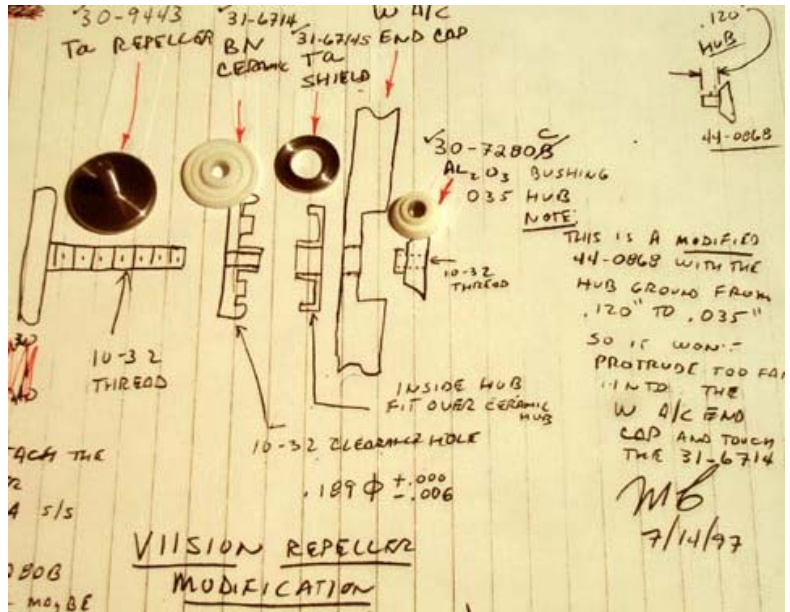 ✓30-9443
Ta REPELLER
✓31-6714
BN
CERAMIC
✓31-6714S
Ta
SHIELD
W A/C
END CAP
.120"
HUB
44-0868
✓30-7280 C
AL2O3 BUSHING
035 HUB
NOTE
THIS IS A MODIFIED
44-0868 WITH THE
HUB GROUND FROM
.120" TO .035"
SO IT WON'T
PROTRUDE TOO FAR
INTO THE
W A/C END
CAP AND TOUCH
THE 31-6714
MB
7/14/97
10-32
THREAD
10-32
THREAD
INSIDE HUB
FIT OVER CERAMIC
HUB
10-32 CLEARANCE HOLE
.189 ϕ +.000
-.006
TACH THE
A S/S
80B
MAYBE
VIISION REPELLER
MODIFICATION